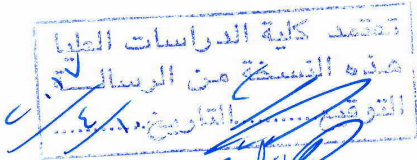 تعتمد كلية الدراسات العليا
هذه النسخة من الرسالــة
التوقيع ............ التاريخ ............